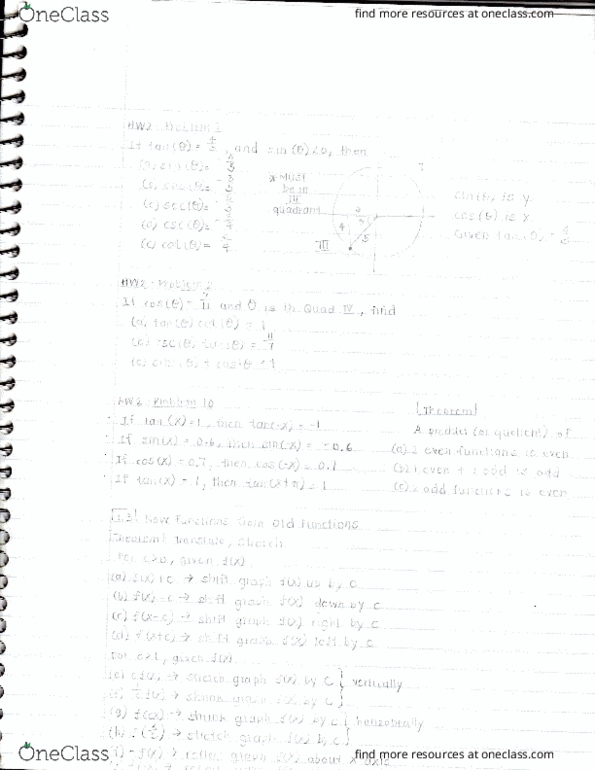 OneClass find more resources at oneclass.com
HW2 Problem 1
If tan(θ) = 4/3, and sin(θ)<0, then
(a) sin(θ)=
(b) sec(θ)=
(c) sec(θ)=
(d) csc(θ)=
(e) cot(θ)=
* Must
be in
III
quadrant
3
4
5
III
sin(θ) is y.
cos(θ) is x.
Given tan(θ) = 4/3
HW2 - Problem 2
If cos(θ) = and θ is in Quad IV, find
(a) tan(θ) cot(θ) = 1
(b) csc(θ) tan(θ) =
HW2 - Problem 10
· If tan(x)=1, then tan(-x) = -1
· If sin(x) = 0.6, then sin(-x) = -0.6
· If cos(x) = 0.7, then cos(-x) = 0.7
· If tan(x) = 1, then tan(x+π) = 1
[Theorem]
A product (or quotient) of
(a) 2 even functions is even
(b) 1 even + 1 odd is odd
(c) 2 odd functions is even
1.3 New Functions from Old Functions
Theorem: Translate, Stretch
For c>0, given f(x).
(a) f(x)+c → shift graph f(x) up by c
(b) f(x)-c → shift graph f(x) down by c
(c) f(x-c) → shift graph f(x) right by c
(d) f(x+c) → shift graph f(x) left by c
For c>1, given f(x).
(e) cf(x) → stretch graph f(x) by c } vertically
(f) f(x) → shrink graph f(x) by c
(g) f(cx) → shrink graph f(x) by c } horizontally
(h) f(x/c) → stretch graph f(x) by c
(i) -f(x) → reflect graph f(x) about x-axis
OneClass find more resources at oneclass.com